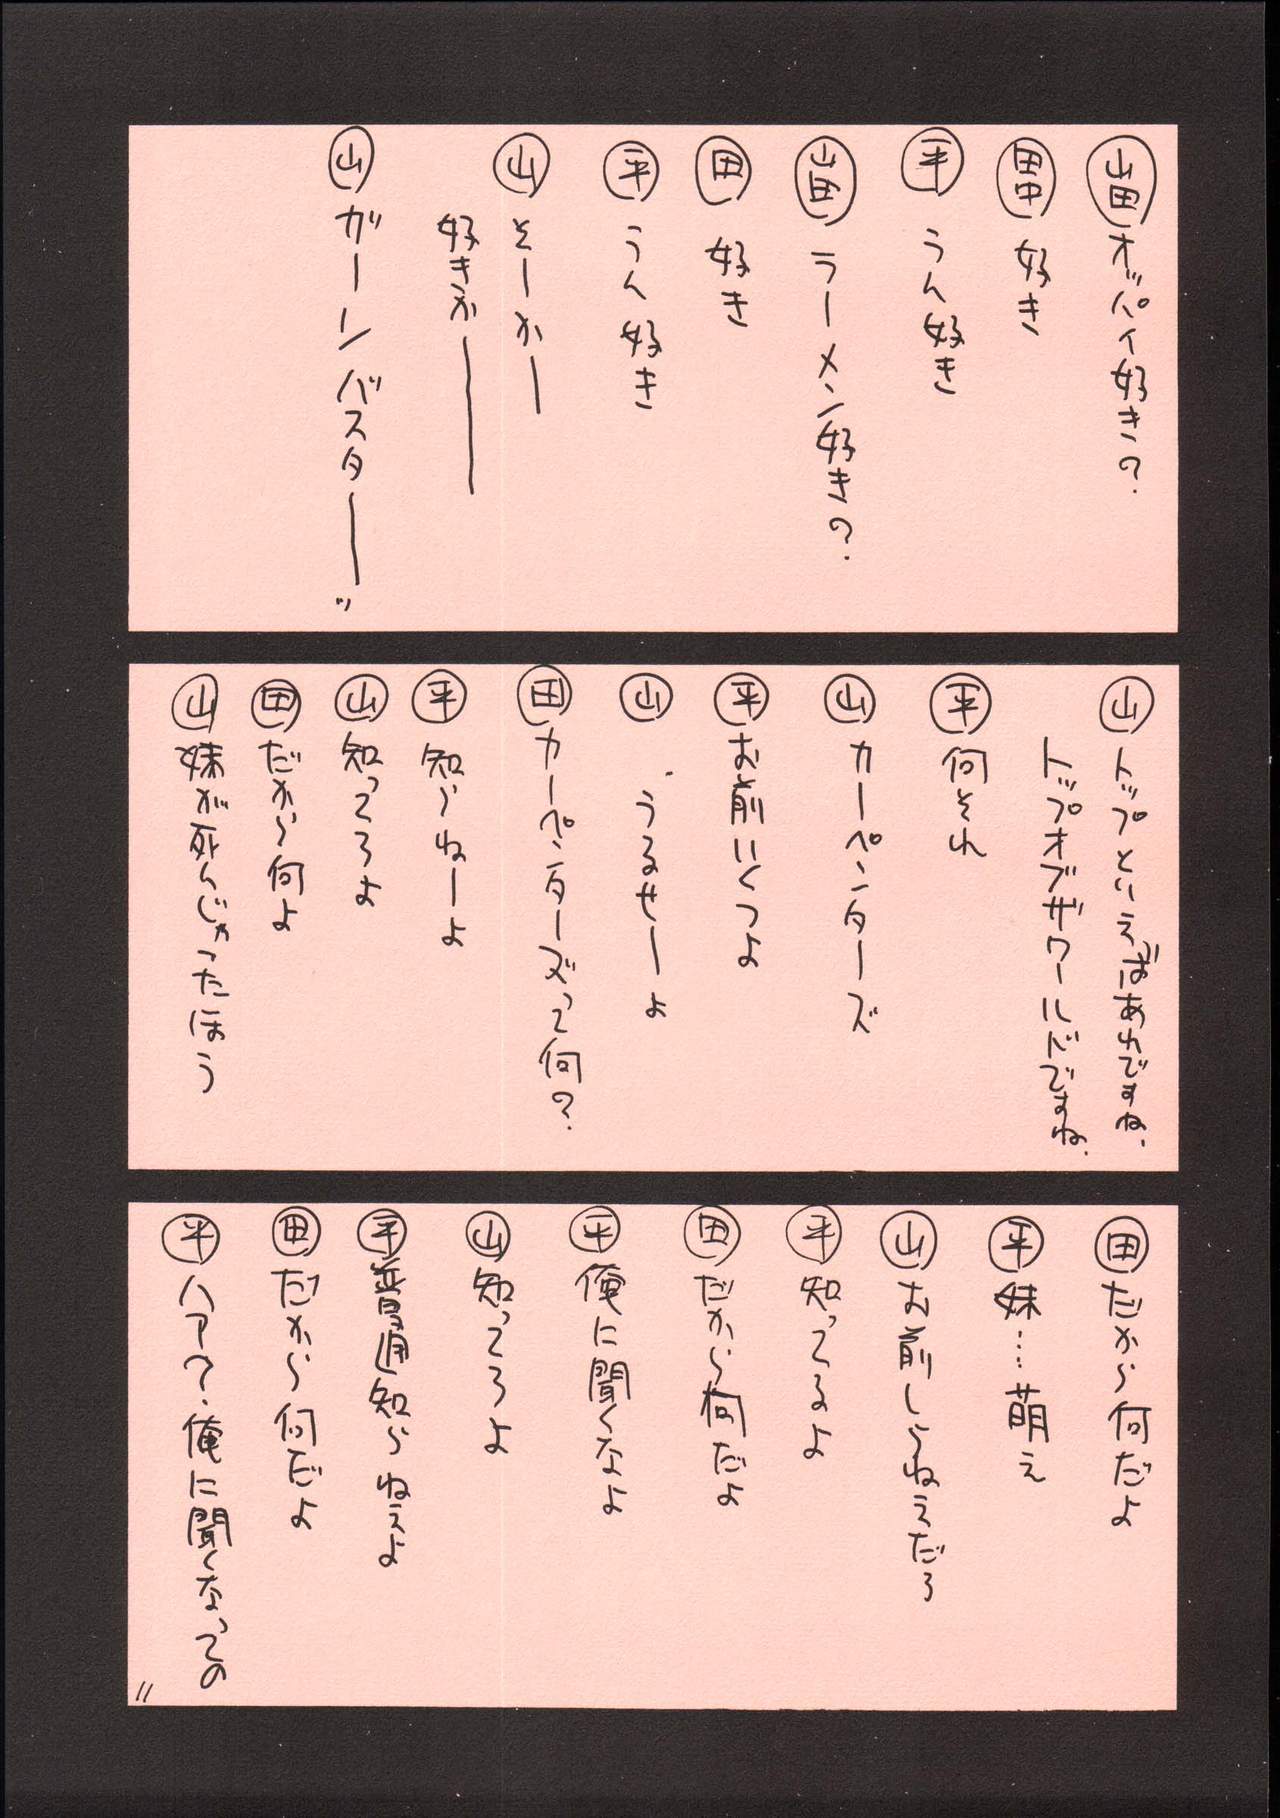 山田 オッパイ好き?
田中 好き
平 うん好き
山田 ラーメン好き?
田 好き
平 うん好き
山 そーかー
好きかー
山 ガーンバスターーッ
山 トップといえばあれですね、
トップオブザワールドですね、
平 何それ
山 カーペンターズ
平 お前いくつよ
山 うるせーよ
田 カーペンターズって何?
平 知らねーよ
山 知ってろよ
田 だから何よ
山 妹が死んじゃったほう
田 だから何だよ
平 妹…萌え
山 お前しらねえだろ
平 知ってるよ
田 だから何だよ
平 俺に聞くなよ
山 知ってろよ
平 普通知らねぇよ
田 だから何だよ
平 ハァ?俺に聞くなっての
11